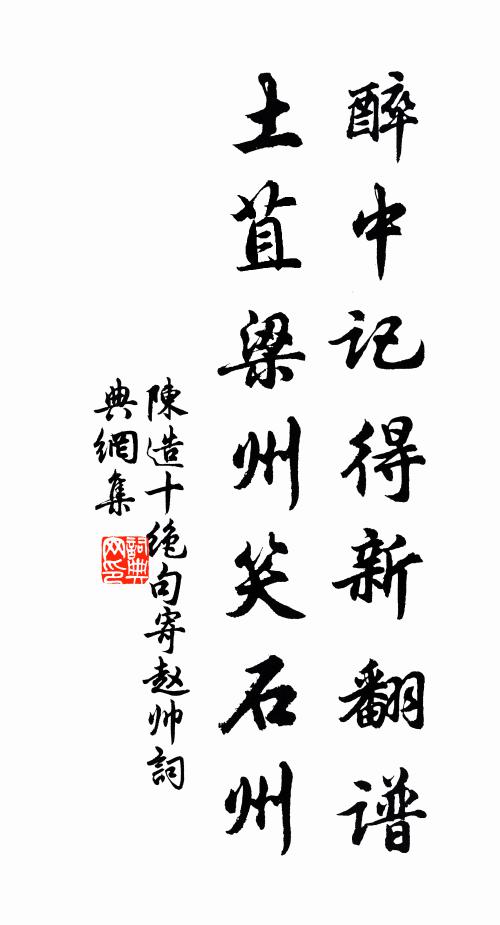 醉中记得新翻谱
土苴梁州笑石州
陳造十绝句寄赵帅詞
典網集
詞典
网印